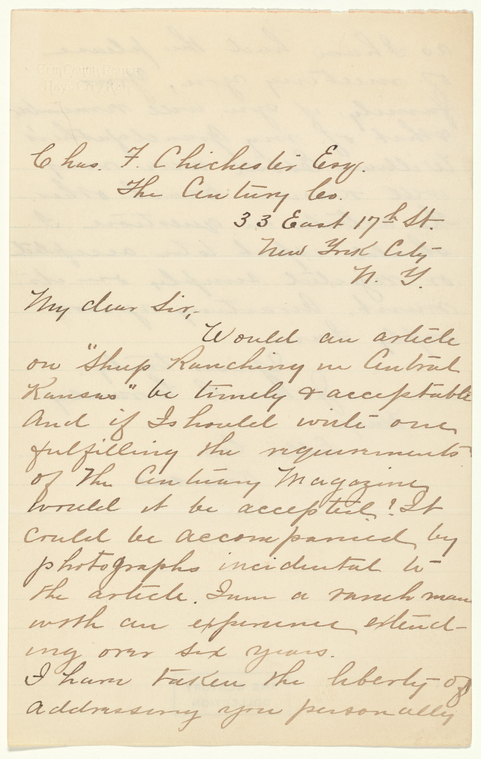 Chas. F. Chichester Esq.
The Century Co.
33 East 17th St.
New York City
N. Y.
My dear Sir,
Would an article
on "Sheep Ranching in Central
Kansas" be timely & acceptable
And if I should write one
fulfilling the requirements
of The Century Magazine
would it be accepted? It
could be accompanied by
photographs incidental to
the article. I am a ranchman
with an experience extend-
ing over six years.
I have taken the liberty of
addressing you personally